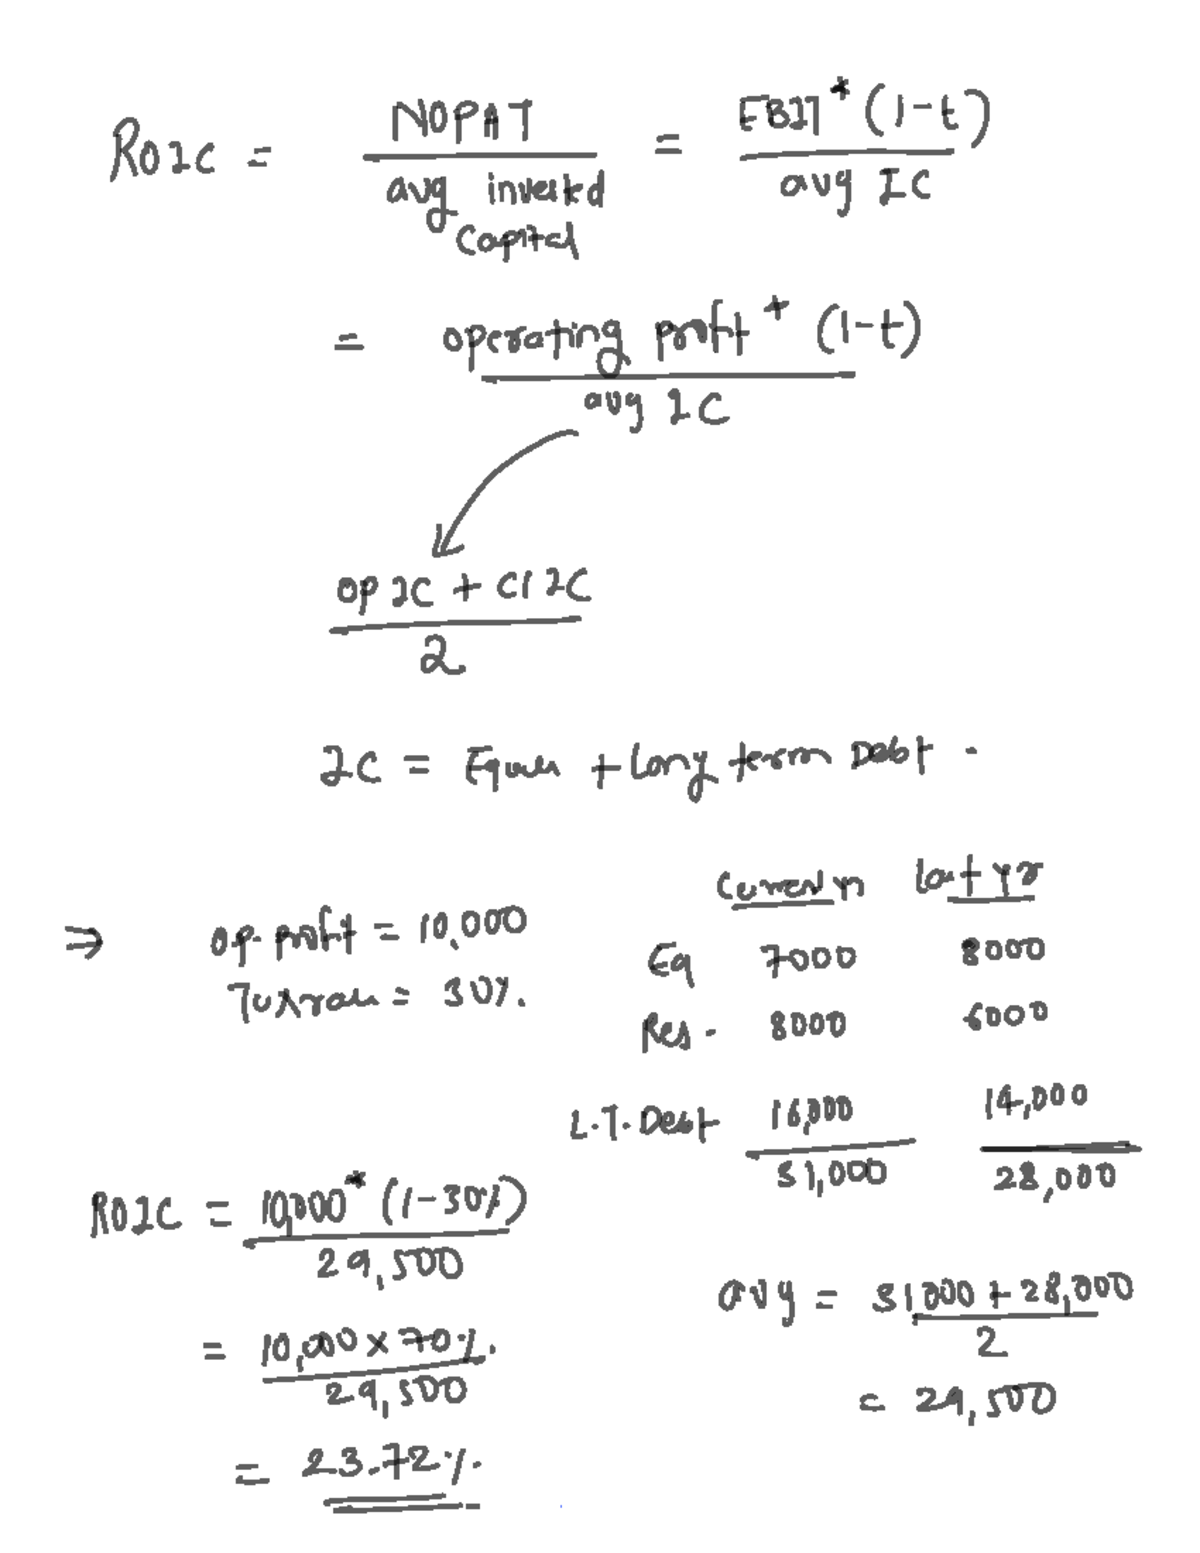 ROIC = NOPAT / avg invested capital = EBIT* (1-t) / avg IC
= operating profit * (1-t) / avg IC
op IC + Cl IC / 2
IC = Equity + long term Debt.
Current yr last yr
⇒ op. profit = 10,000 Eq 7000 8000
Tax rate = 30%. Res. 8000 6000
L.T. Debt 16,000 14,000
31,000 28,000
ROIC = 10,000* (1-30%) / 29,500
avg = 31000 + 28,000 / 2
= 10,000 x 70%. / 29,500
= 29,500
= 23.72%.